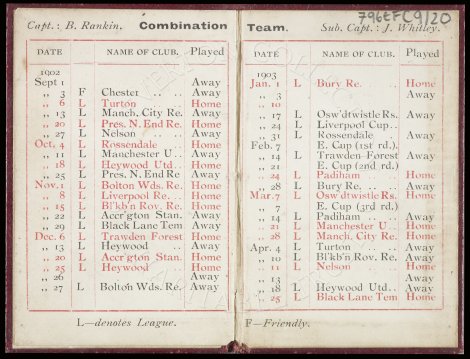 Capt.: B. Rankin. Combination
DATE NAME OF CLUB. Played
1902
Sept 1 Away
„ 3 F Chester .. .. Away
„ 6 L Turton Home
„ 13 L Manch. City Re. Away
„ 20 L Pres. N. End Re. Home
„ 27 L Nelson .. .. Away
Oct. 4 L Rossendale Home
„ 11 L Manchester U .. Away
„ 18 L Heywood Utd .. Home
„ 25 L Pres. N. End Re Away
Nov. 1 L Bolton Wds. Re. Home
„ 8 L Liverpool Re. .. Home
„ 15 L Bl'kb'n Rov. Re. Home
„ 22 L Accr'gton Stan. Away
„ 20 L Black Lane Tem Away
Dec. 6 L Trawden Forest Home
„ 13 L Heywood .. .. Away
„ 20 L Accr'gton Stan. Home
„ 25 L Heywood Home
„ 26 Away
„ 27 L Bolto'n Wds. Re. Away
L—denotes League.
796EFC9/20
Team. Sub. Capt.: J. Whitley.
DATE NAME OF CLUB. Played
1903
Jan. 1 L Bury Re. .. Home
„ 3 Away
„ 10
„ 17 L Osw'dtwistle Rs. Away
„ 24 L Liverpool Cup ..
„ 31 L Rossendale Away
Feb. 7 E. Cup (1st rd.)
„ 14 L Trawden-Forest Away
„ 21 E. Cup (2nd rd.)
„ 24 L Padiham Home
„ 28 L Bury Re. .. .. Away
Mar. 7 L Osw'dtwistle Rs. Home
„ 7 E. Cup (3rd rd.)
„ 14 L Padiham .. .. Away
„ 21 L Manchester U .. Home
„ 28 L Manch. City Re. Home
Apr. 4 L Turton .. .. Away
„ 10 L Bl'kb'n Rov. Re. Away
„ 11 L Nelson Home
„ 13 Away
„ 18 L Heywood Utd .. Away
„ 25 L Black Lane Tem Home
F—Friendly.